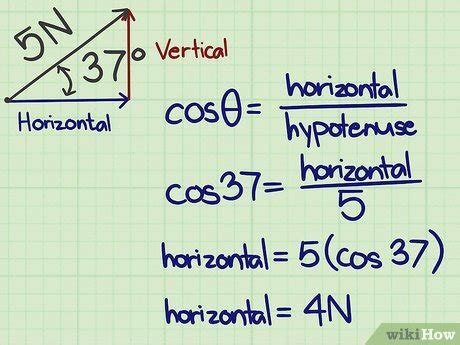 5N
37° Vertical
Horizontal
cosθ = horizontal / hypotenuse
cos37 = horizontal / 5
horizontal = 5(cos 37)
horizontal = 4N
wikiHow